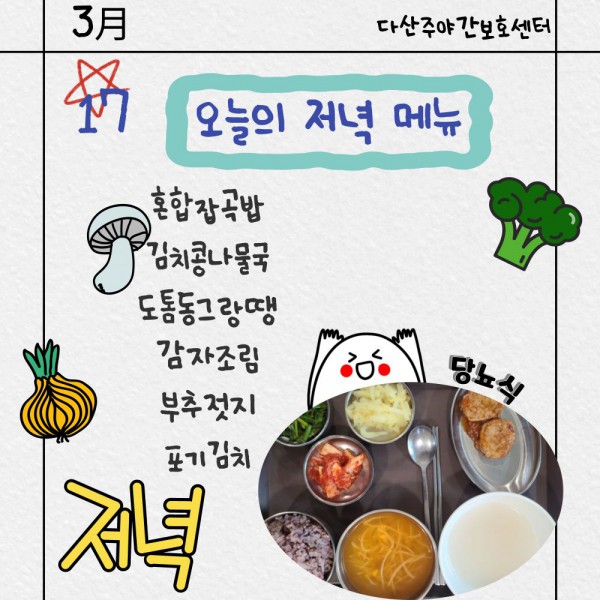 3月
다산주야간보호센터
17
오늘의 저녁 메뉴
혼합잡곡밥
김치콩나물국
도톰동그랑땡
감자조림
부추젓지
포기김치
당뇨식
저녁